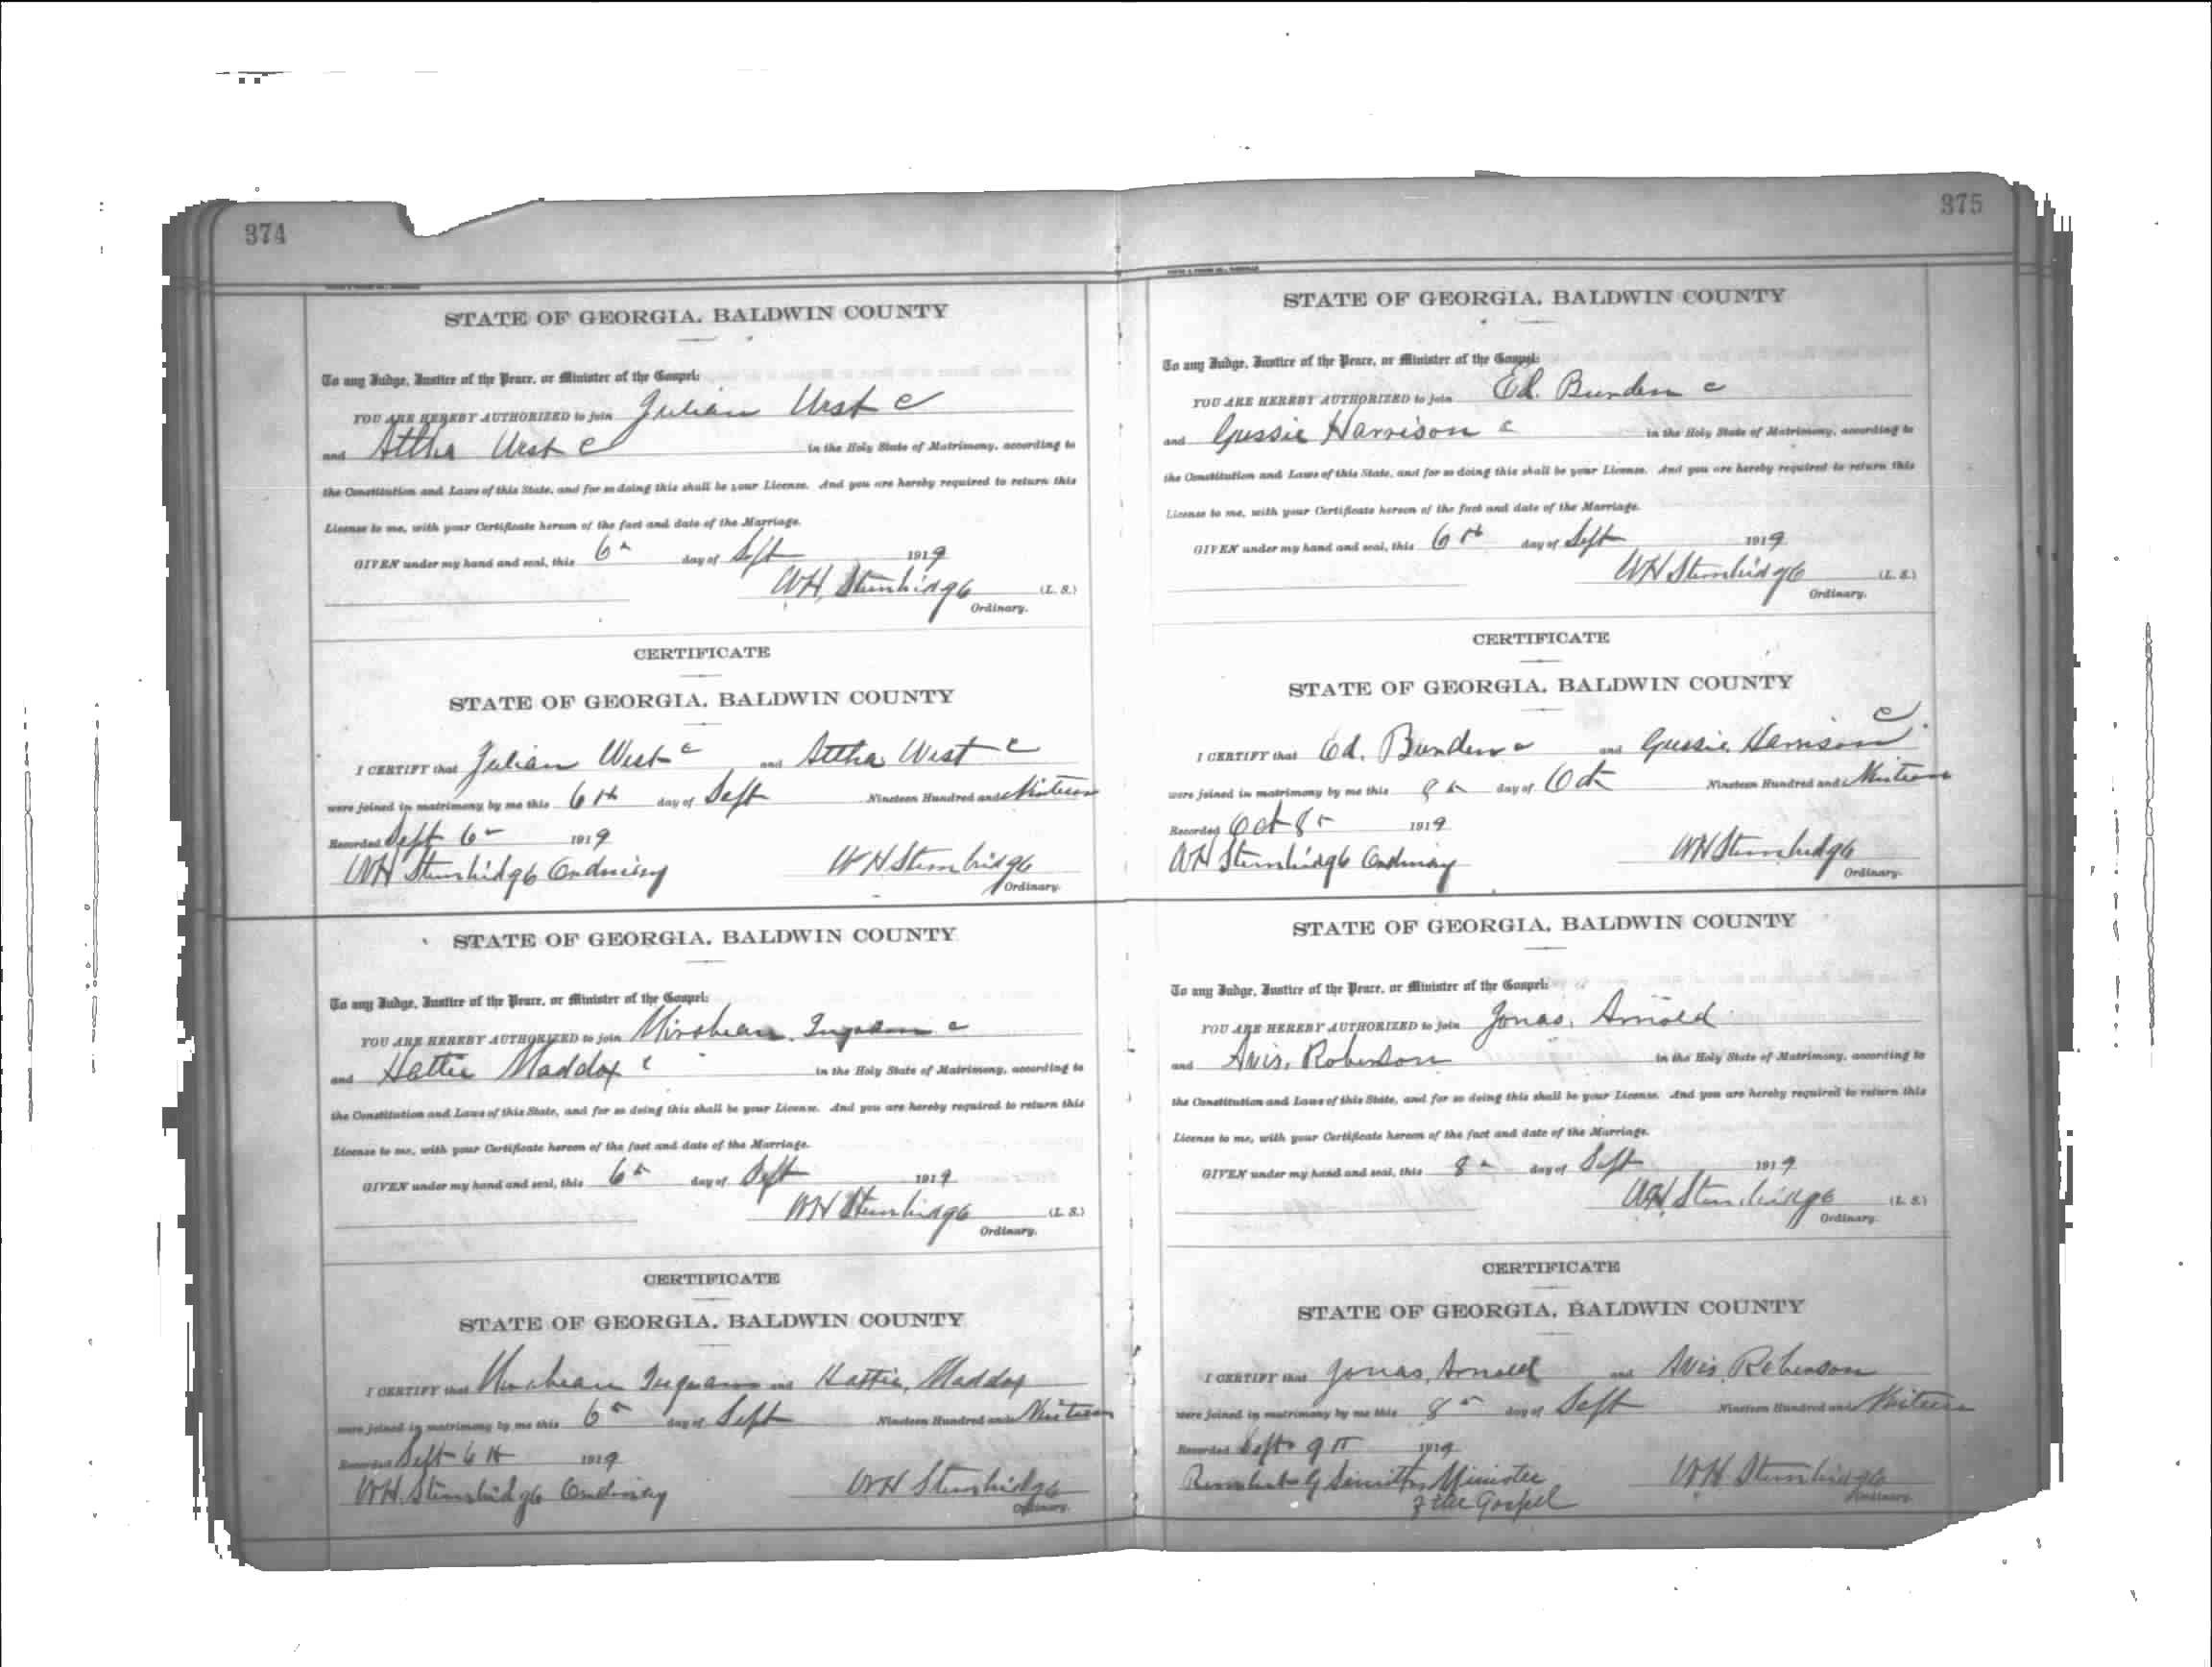 374
STATE OF GEORGIA, BALDWIN COUNTY
To any Judge, Justice of the Peace, or Minister of the Gospel:
YOU ARE HEREBY AUTHORIZED to join Julian West c
and Attha West c in the Holy State of Matrimony, according to
the Constitution and Laws of this State, and for so doing this shall be your License. And you are hereby required to return this
License to me, with your Certificate hereon of the fact and date of the Marriage.
GIVEN under my hand and seal, this 6th day of Sept 1919
WH Stembridge (L. S.)
Ordinary.
CERTIFICATE
STATE OF GEORGIA, BALDWIN COUNTY
I CERTIFY that Julian West c and Attha West c
were joined in matrimony by me this 6th day of Sept Nineteen Hundred and Nineteen
Recorded Sept 6th 1919
WH Stembridge Ordinary WH Stembridge
Ordinary.
STATE OF GEORGIA, BALDWIN COUNTY
To any Judge, Justice of the Peace, or Minister of the Gospel:
YOU ARE HEREBY AUTHORIZED to join Mirabeau Ingram c
and Hattie Maddox c in the Holy State of Matrimony, according to
the Constitution and Laws of this State, and for so doing this shall be your License. And you are hereby required to return this
License to me, with your Certificate hereon of the fact and date of the Marriage.
GIVEN under my hand and seal, this 6th day of Sept 1919
WH Stembridge (L. S.)
Ordinary.
CERTIFICATE
STATE OF GEORGIA, BALDWIN COUNTY
I CERTIFY that Mirabeau Ingram and Hattie Maddox
were joined in matrimony by me this 6th day of Sept Nineteen Hundred and Nineteen
Recorded Sept 6th 1919
WH Stembridge Ordinary WH Stembridge
Ordinary.
375
STATE OF GEORGIA, BALDWIN COUNTY
To any Judge, Justice of the Peace, or Minister of the Gospel:
YOU ARE HEREBY AUTHORIZED to join Ed. Burden c
and Gussie Harrison c in the Holy State of Matrimony, according to
the Constitution and Laws of this State, and for so doing this shall be your License. And you are hereby required to return this
License to me, with your Certificate hereon of the fact and date of the Marriage.
GIVEN under my hand and seal, this 6th day of Sept 1919
WH Stembridge (L. S.)
Ordinary.
CERTIFICATE
STATE OF GEORGIA, BALDWIN COUNTY
I CERTIFY that Ed. Burden c and Gussie Harrison c
were joined in matrimony by me this 8th day of Oct Nineteen Hundred and Nineteen
Recorded Oct 8th 1919
WH Stembridge Ordinary WH Stembridge
Ordinary.
STATE OF GEORGIA, BALDWIN COUNTY
To any Judge, Justice of the Peace, or Minister of the Gospel:
YOU ARE HEREBY AUTHORIZED to join Jonas, Arnold
and Avis, Roberson in the Holy State of Matrimony, according to
the Constitution and Laws of this State, and for so doing this shall be your License. And you are hereby required to return this
License to me, with your Certificate hereon of the fact and date of the Marriage.
GIVEN under my hand and seal, this 8th day of Sept 1919
WH Stembridge (L. S.)
Ordinary.
CERTIFICATE
STATE OF GEORGIA, BALDWIN COUNTY
I CERTIFY that Jonas, Arnold and Avis Roberson
were joined in matrimony by me this 8th day of Sept Nineteen Hundred and Nineteen
Recorded Sept 9th 1919
G Smith Minister WH Stembridge
of the Gospel Ordinary.